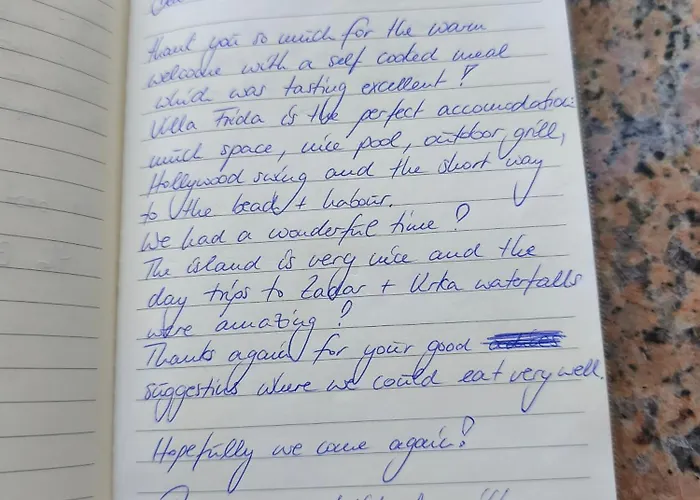 thank you so much for the warm
welcome with a self cooked meal
which was tasting excellent!
Villa Frida is the perfect accomodation:
much space, nice pool, outdoor grill,
Hollywood swing and the short way
to the beach + habour.
We had a wonderful time!
The island is very nice and the
day trips to Zadar + Krka waterfalls
were amazing!
Thanks again for your good
suggestions where we could eat very well.
Hopefully we come again!